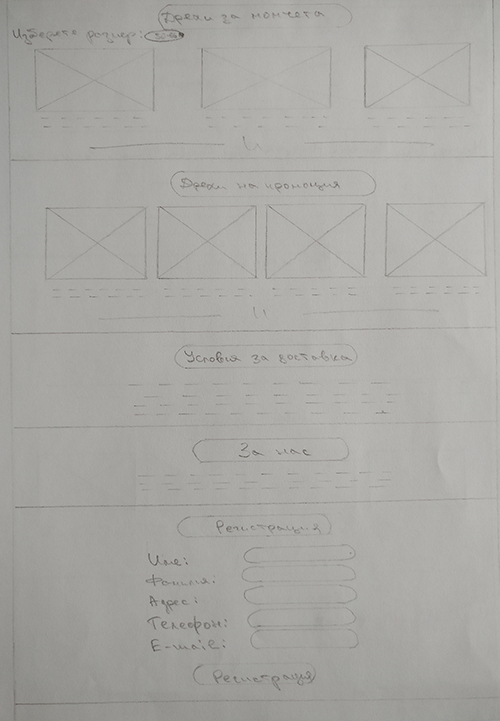 Дрехи за момчета
Изберете размер:
Дрехи на промоция
Условия за доставка
За нас
Регистрация
Име:
Фамилия:
Адрес:
Телефон:
E-mail:
Регистрация